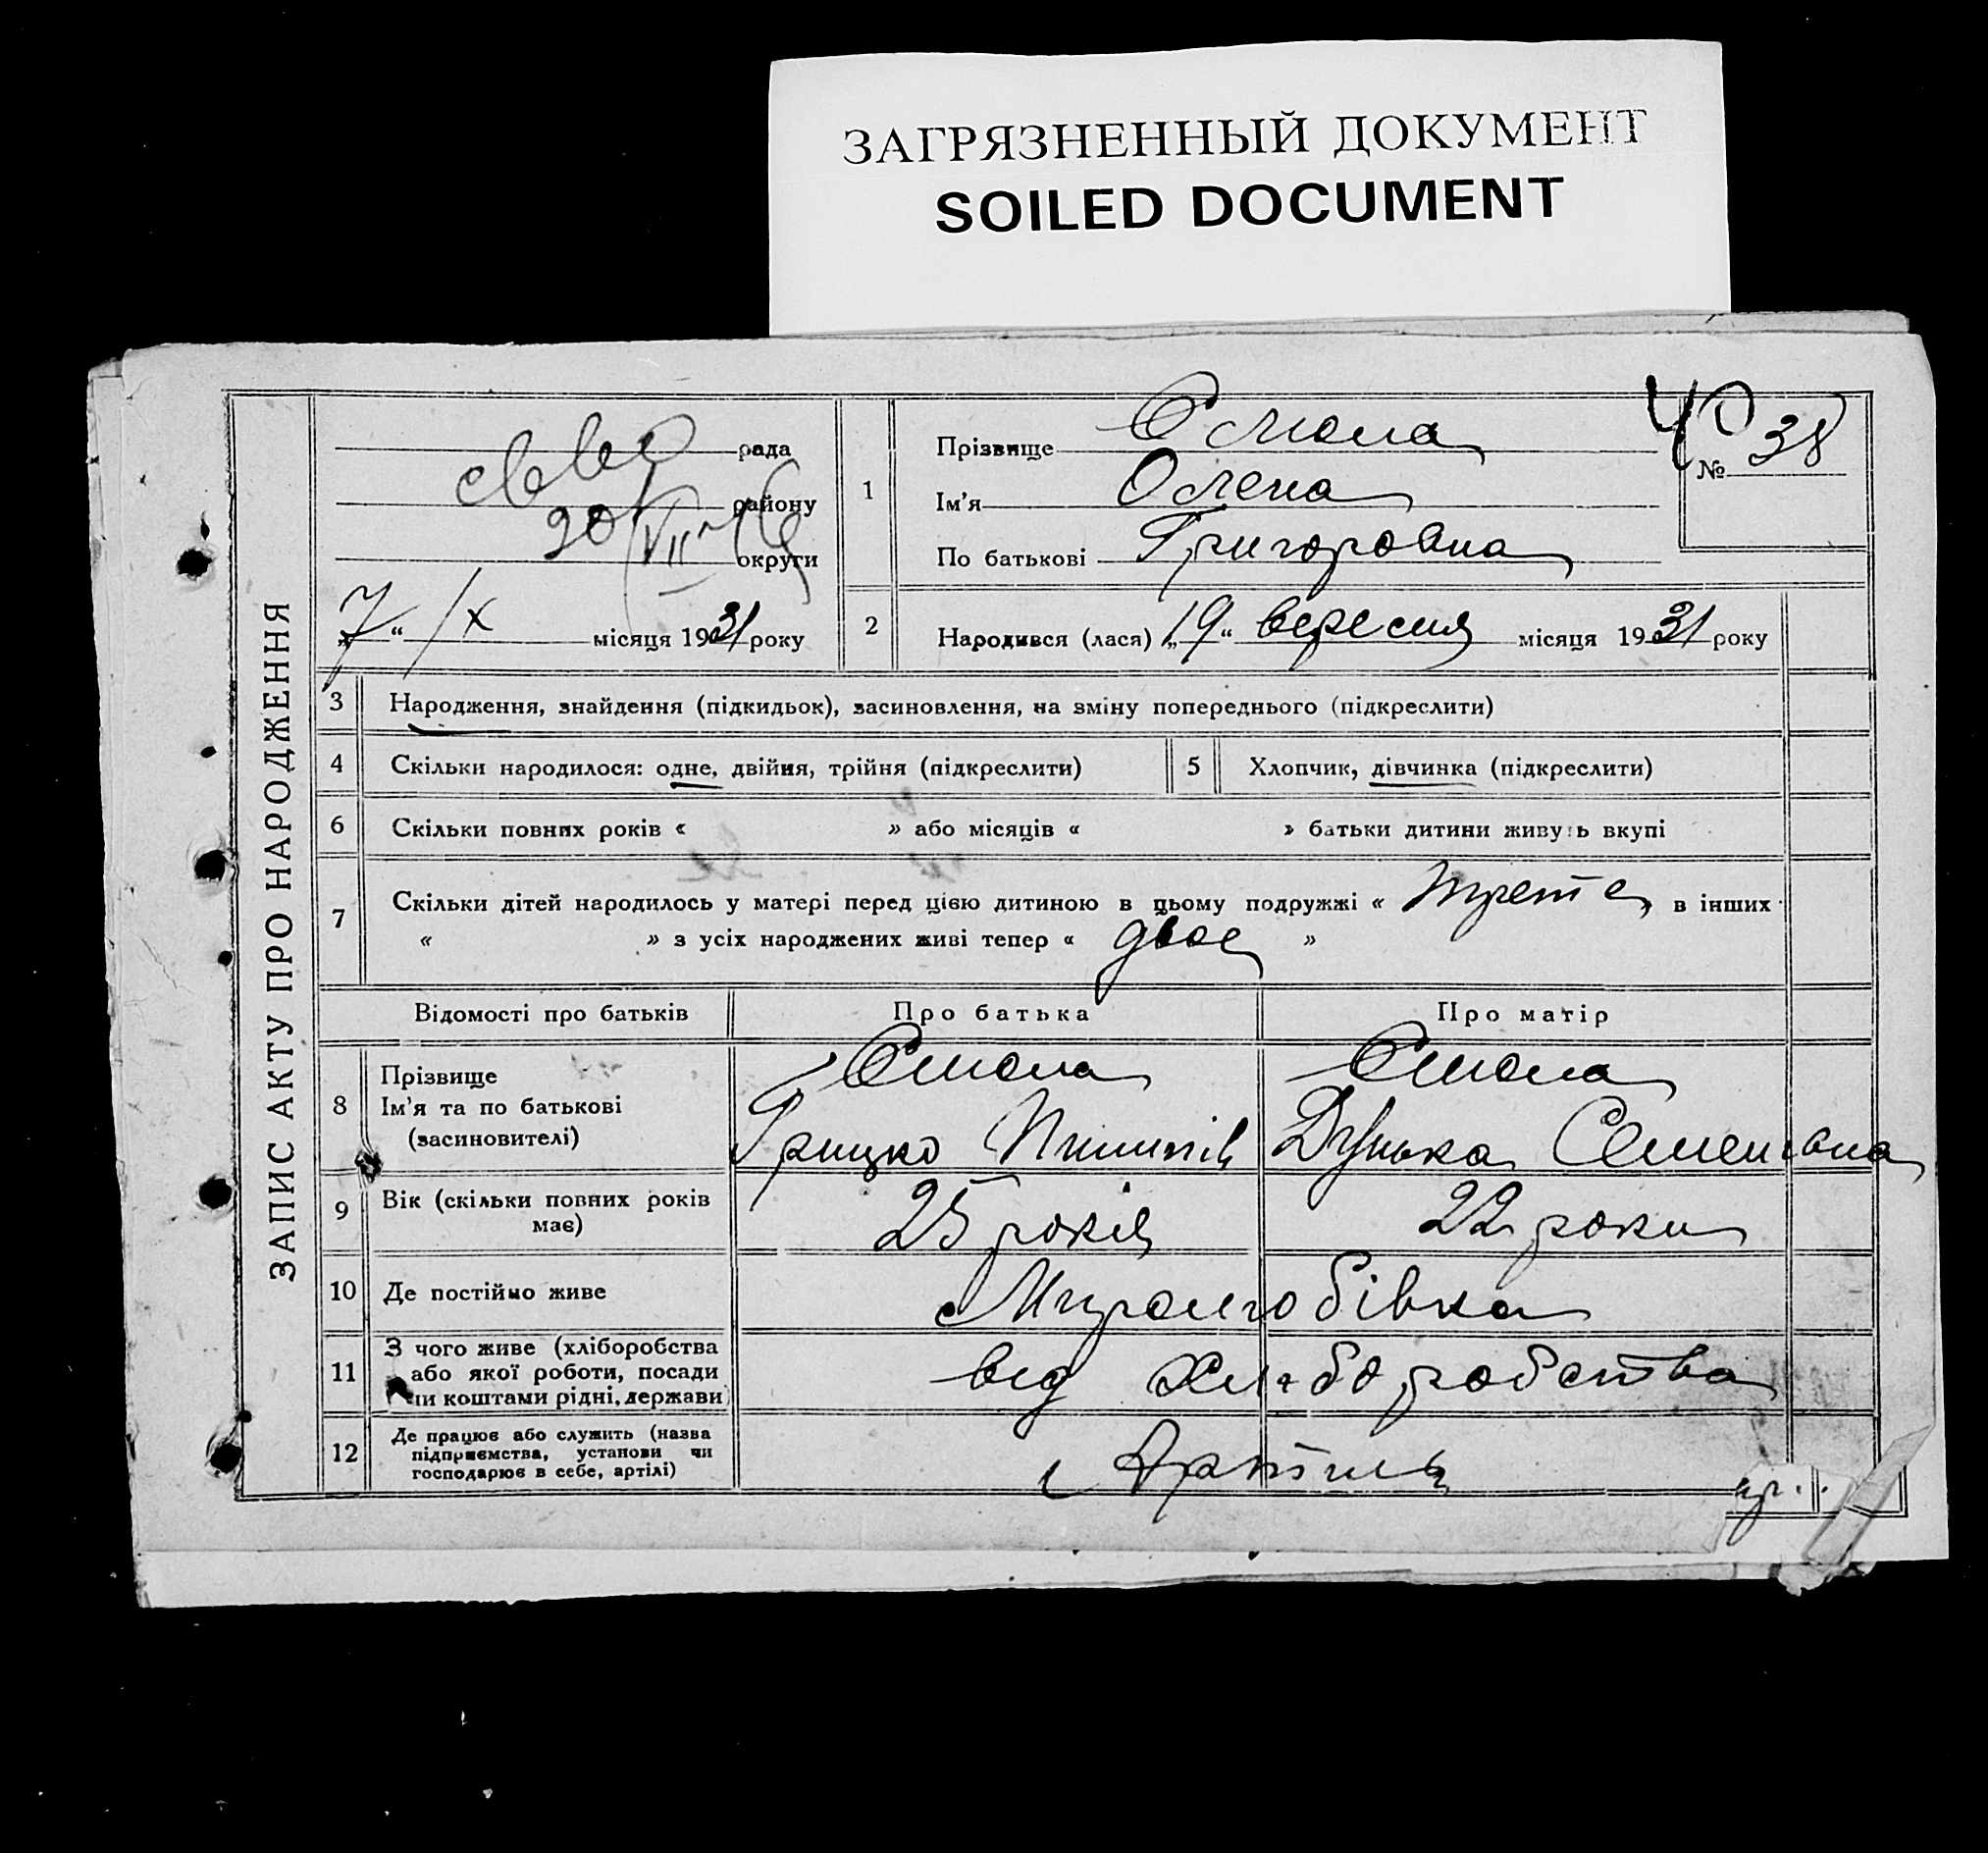 ЗАГРЯЗНЕННЫЙ ДОКУМЕНТ
SOILED DOCUMENT
ЗАПИС АКТУ ПРО НАРОДЖЕННЯ
рада
району
округи
7 “ IX місяця 1931 року
40
№ 38
1
Прізвище Смола
Ім’я Олена
По батькові Григоровна
2 Народився (лася) „19“ вересня місяця 1931 року
3 Народження, знайдення (підкидьок), засиновлення, на зміну попереднього (підкреслити)
4 Скільки народилося: одне, двійня, трійня (підкреслити)
5 Хлопчик, дівчинка (підкреслити)
6 Скільки повних років « » або місяців « » батьки дитини живуть вкупі
7 Скільки дітей народилось у матері перед цією дитиною в цьому подружжі « третє » в інших
« » з усіх народжених живі тепер « двоє »
Відомості про батьків Про батька Про матір
8 Прізвище Смола Смола
Ім’я та по батькові Грицко Пилипів Дунька Семенівна
(засиновителі)
9 Вік (скільки повних років має) 25 років 22 роки
10 Де постійно живе Миролюбівка
11 З чого живе (хліборобства
або якої роботи, посади
чи коштами рідні, держави) від хліборобства
12 Де працює або служить (назва
підприємства, установи чи
господарює в себе, артілі) Артиль